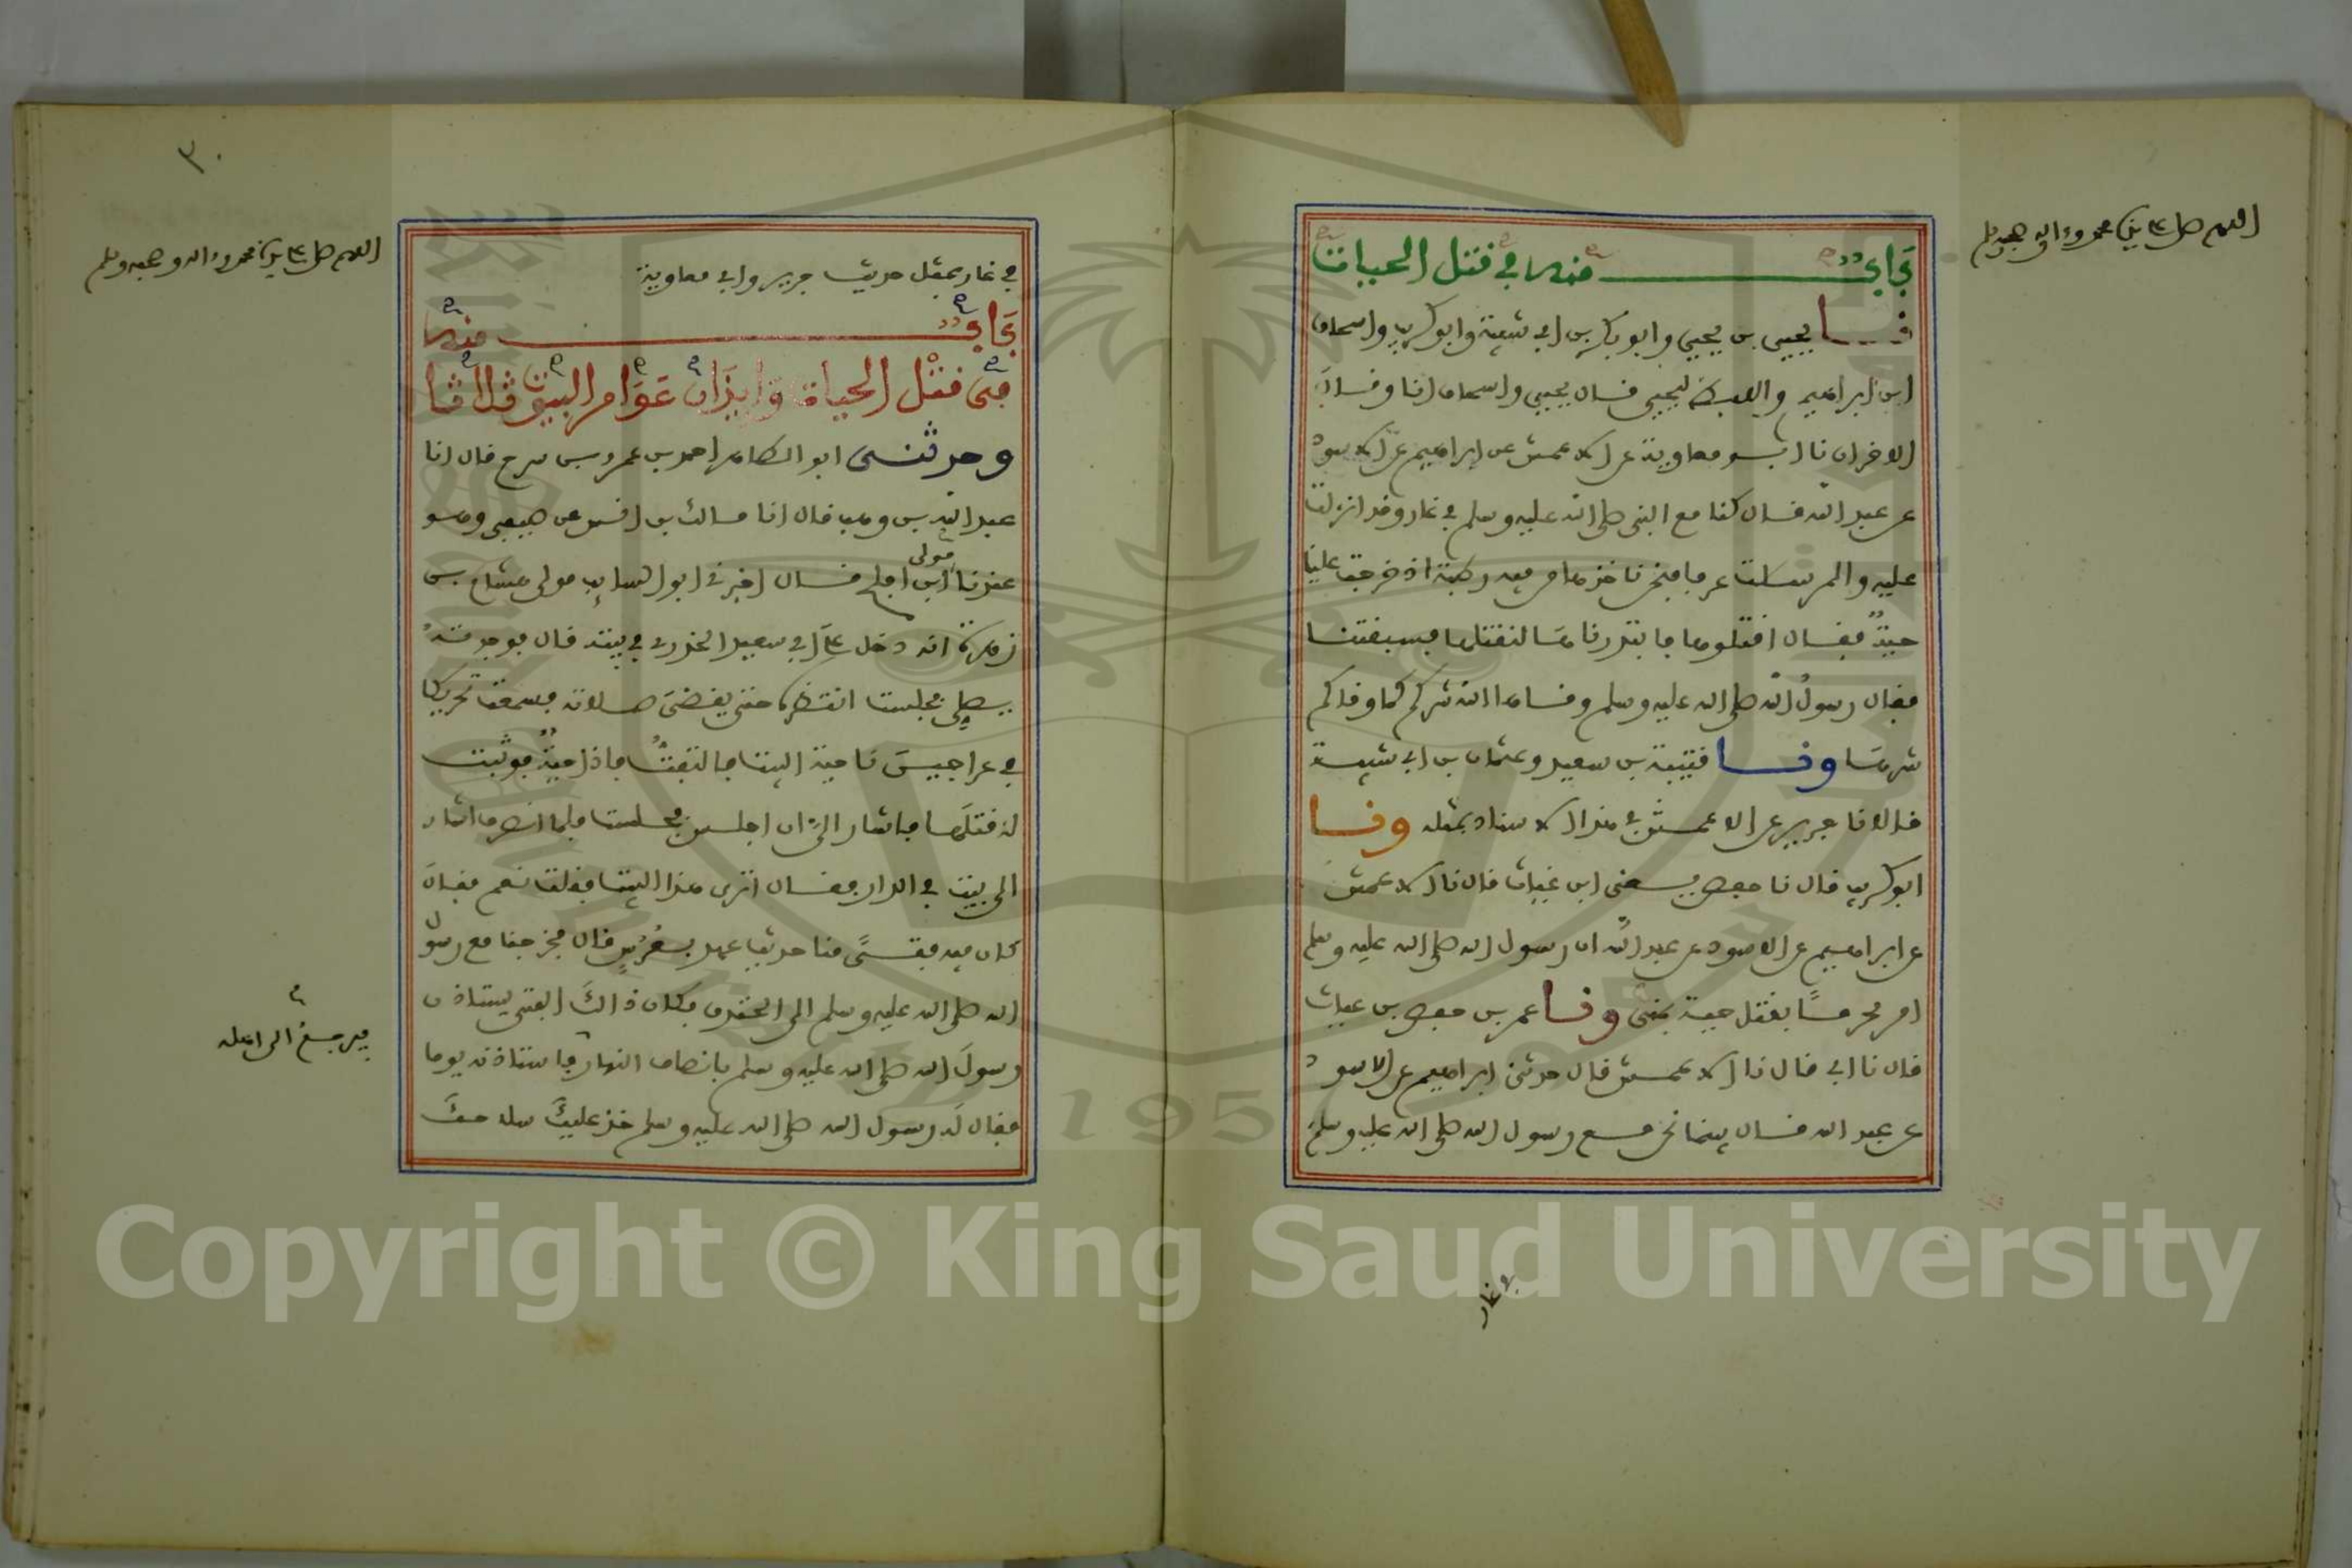 اللهم صل على سيدنا محمد وءاله وصحبه وسلم
باب منه في قتل الحيات
نا يحيى بن يحيى وابو بكر بن ابي شيبة وابو كريب واسحاق
ابن ابراهيم واللفظ ليحيى قال يحيى واسحاق انا وقال
الاخران نا ابو معاوية عن الاعمش عن ابراهيم عن الاسود
عن عبد الله قال كنا مع النبي صلى الله عليه وسلم في غار وقد انزلت
عليه والمرسلت عرفا فنحن ناخذها من فيه رطبة اذ خرجت علينا
حية فقال اقتلوها فابتدرناها لنقتلها فسبقتنا
فقال رسول الله صلى الله عليه وسلم وقاها الله شركم كما وقاكم
شرها ونا قتيبة بن سعيد وعثمان بن ابي شيبة
قالا نا جرير عن الاعمش في هذا الاسناد بمثله ونا
ابو كريب قال نا حفص يعنى ابن غياث قال نا الاعمش
عن ابراهيم عن الاسود عن عبد الله ان رسول الله صلى الله عليه وسلم
امر محرمًا بقتل حية بمنى ونا عمر بن حفص بن غياث
قال نا ابي قال نا الاعمش قال حدثنى ابراهيم عن الاسود
عن عبد الله قال بينما نحن مع رسول الله صلى الله عليه وسلم
في غار
٣٠
اللهم صل على سيدنا محمد وءاله وصحبه وسلم
في غار بمثل حديث جرير وابي معاوية
باب منه
في قتل الحيات وايذان عوامر البيوت ثلاثا
وحدثنى ابو الطاهر احمد بن عمرو بن سرح قال انا
عبد الله بن وهب قال انا مالك بن انس عن صيفي وهو
عندنا مولى ابن افلح قال اخبرني ابو السايب مولى هشام بن
زهرة انه دخل على ابي سعيد الخدري في بيته قال فوجدته
يصلي فجلست انتظره حتى يقضي صلاته فسمعت تحريكا
في عراجين ناحية البيت فالتفت فاذا حية فوثبت
لاقتلها فاشار الي ان اجلس فجلست فلما انصرف اشار
الى بيت في الدار فقال اترى هذا البيت فقلت نعم فقال
كان فيه فتًى منا حديث عهد بعرس قال فخرجنا مع رسول
الله صلى الله عليه وسلم الى الخندق فكان ذالك الفتى يستاذن
رسول الله صلى الله عليه وسلم بانصاف النهار فاستاذنه يوما
فقال له رسول الله صلى الله عليه وسلم خذ عليك سلاحك
فيرجع الى اهله
Copyright © King Saud University
1957